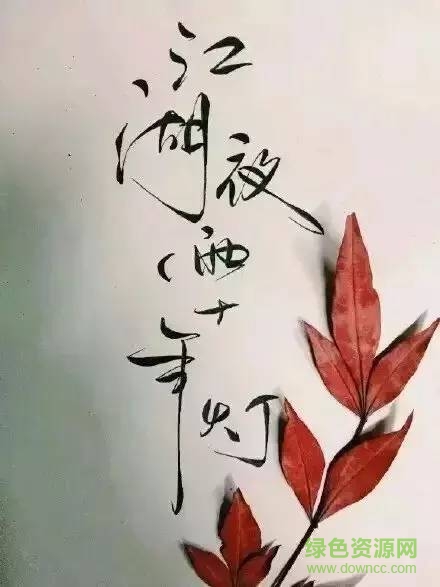 江湖夜雨十年灯
绿色资源网
www.downcc.com